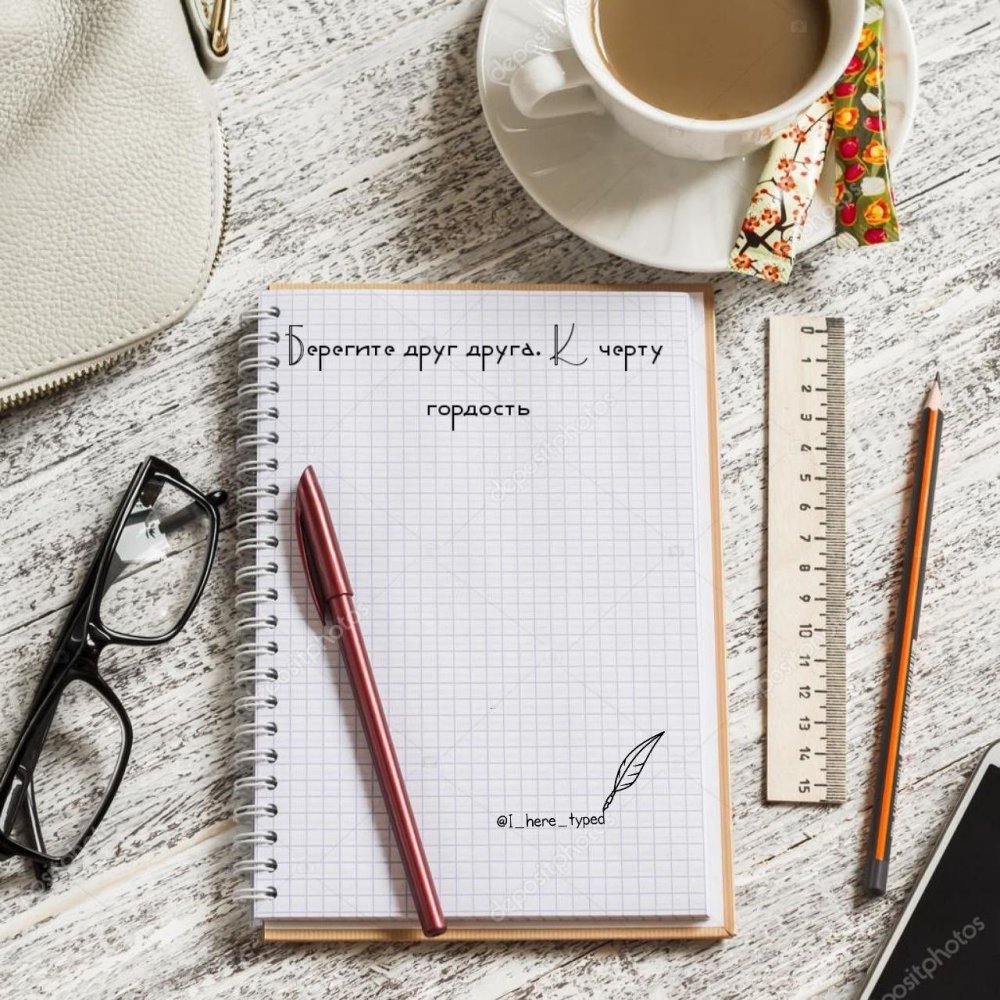 Берегите друг друга. К черту
гордость
@I_here_typed
0
1
2
3
4
5
6
7
8
9
10
11
12
13
14
15
depositphotos